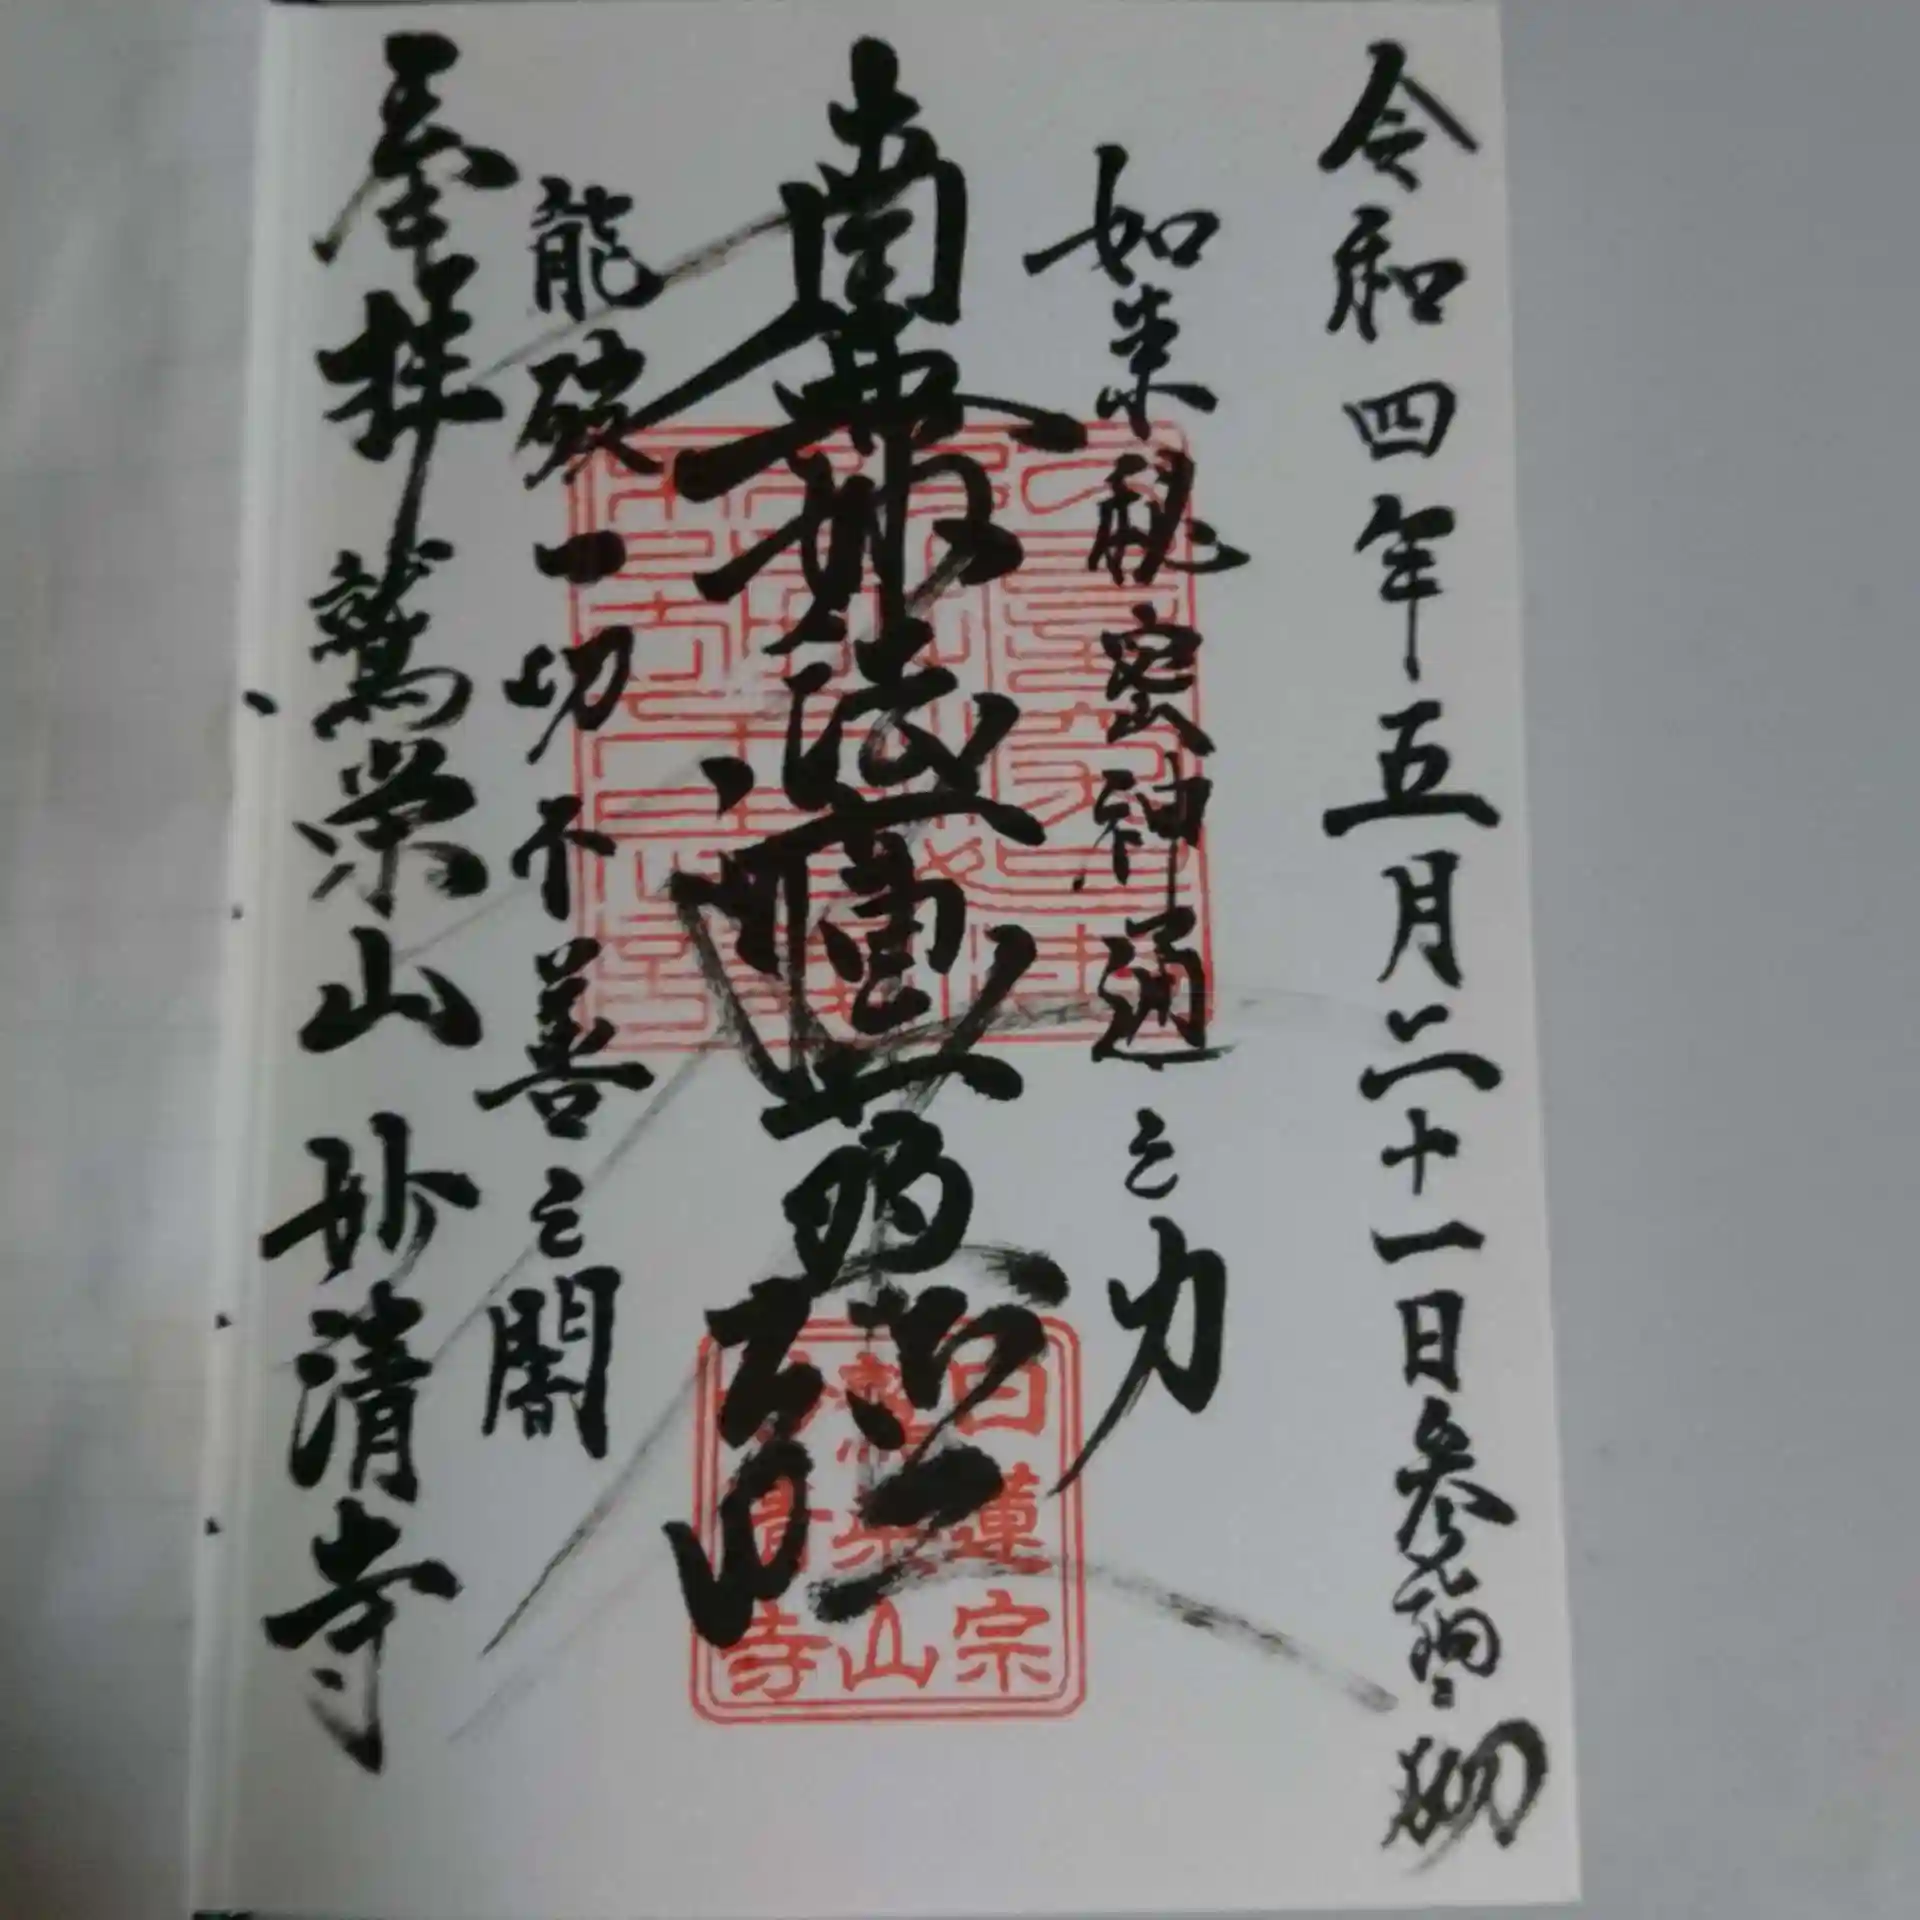 令和四年五月二十一日参詣之砌
如来秘密神通之力
南無妙法蓮華経
能破一切不善之闇
奉拝 鷲栄山 妙清寺
日蓮宗
鷲栄山
妙清寺